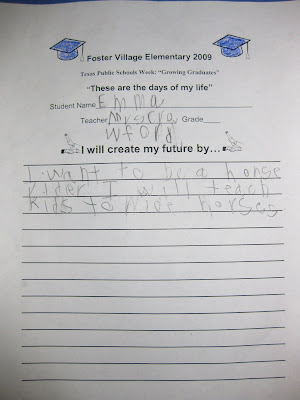 Foster Village Elementary 2009
Texas Public Schools Week: "Growing Graduates"
"These are the days of my life"
Student Name Emma
Teacher Mrscra Grade
wford
I will create my future by...
I want to be a horse
rider I will teach
kids to ride horses